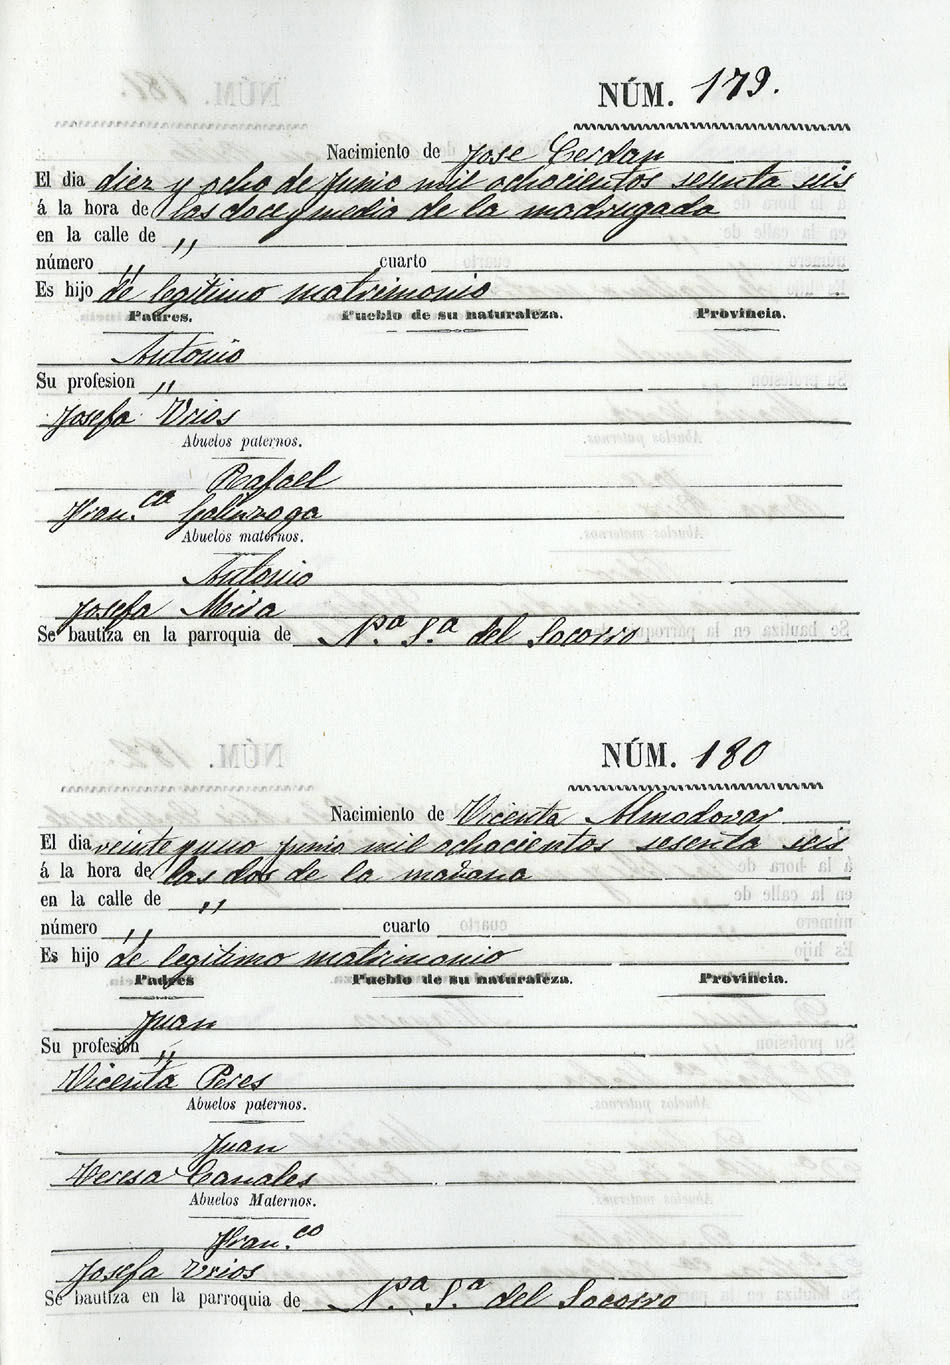 NÚM. 179.
Nacimiento de Jose Cerdan
El dia diez y ocho de Junio mil ochocientos sesenta seis
á la hora de las doce y media de la madrugada
en la calle de "
número " cuarto
Es hijo de legitimo matrimonio
Padres. Pueblo de su naturaleza. Provincia.
Antonio
Su profesion "
Josefa Vrios
Abuelos paternos.
Rafael
Fran.ca Galinzoga
Abuelos maternos.
Antonio
Josefa Mira
Se bautiza en la parroquia de N.a S.a del Socorro
NÚM. 180
Nacimiento de Vicenta Almodovar
El dia veinte y uno Junio mil ochocientos sesenta seis
á la hora de las dos de la mañana
en la calle de "
número " cuarto
Es hijo de legitimo matrimonio
Padres Pueblo de su naturaleza. Provincia.
Juan
Su profesion "
Vicenta Peres
Abuelos paternos.
Juan
Teresa Canales
Abuelos Maternos.
Fran.co
Josefa Vrios
Se bautiza en la parroquia de N.a S.a del Socorro